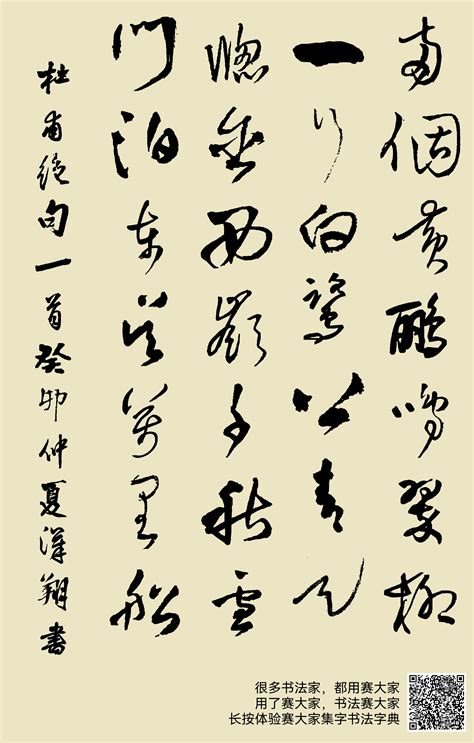 兩個黃鸝鳴翠柳
一行白鷺上青天
窗含西嶺千秋雪
門泊東吳萬里船
杜甫絕句一首癸卯仲夏漢翔書
很多书法家，都用赛大家
用了赛大家，书法赛大家
长按体验赛大家集字书法字典